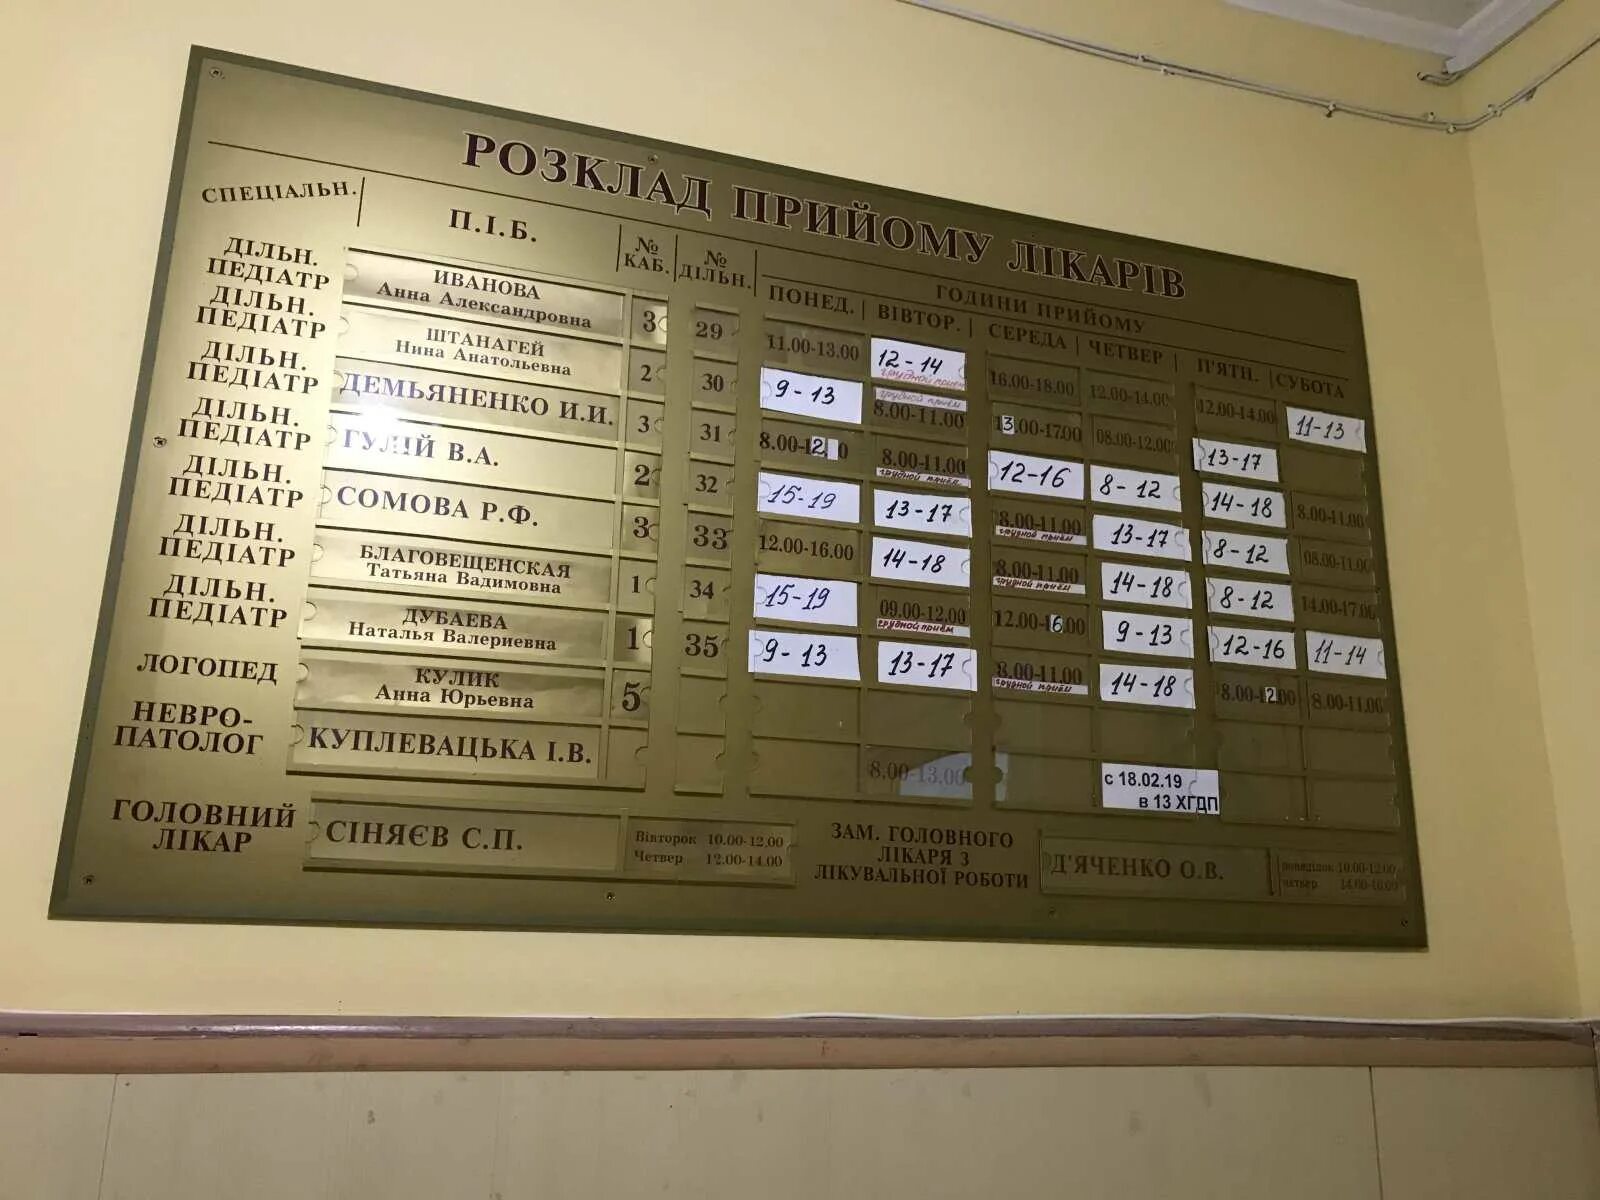 РОЗКЛАД ПРИЙОМУ ЛІКАРІВ
СПЕЦІАЛЬН. П.І.Б. № КАБ. № ДІЛЬН. ГОДИНИ ПРИЙОМУ
ПОНЕД. ВІВТОР. СЕРЕДА ЧЕТВЕР П'ЯТН. СУБОТА
ДІЛЬН. ПЕДІАТР ИВАНОВА Анна Александровна 3 29 11.00-13.00 12-14 грудной приём 16.00-18.00 12.00-14.00 12.00-14.00 11-13
ДІЛЬН. ПЕДІАТР ШТАНАГЕЙ Нина Анатольевна 2 30 9-13 грудной приём 8.00-11.00 13.00-17.00 08.00-12.00 13-17
ДІЛЬН. ПЕДІАТР ДЕМЬЯНЕНКО И.И. 3 31 8.00-12.00 8.00-11.00 грудной приём 12-16 8-12 14-18 8.00-11.00
ДІЛЬН. ПЕДІАТР ГУЛІЙ В.А. 2 32 15-19 13-17 8.00-11.00 грудной приём 13-17 8-12 08.00-11.00
ДІЛЬН. ПЕДІАТР СОМОВА Р.Ф. 3 33 12.00-16.00 14-18 8.00-11.00 грудной приём 14-18 8-12 14.00-17.00
ДІЛЬН. ПЕДІАТР БЛАГОВЕЩЕНСКАЯ Татьяна Вадимовна 1 34 15-19 09.00-12.00 грудной приём 12.00-16.00 9-13 12-16 11-14
ДІЛЬН. ПЕДІАТР ДУБАЕВА Наталья Валериевна 1 35 9-13 13-17 8.00-11.00 грудной приём 14-18 8.00-12.00 8.00-11.00
ЛОГОПЕД КУЛИК Анна Юрьевна 5
НЕВРО-ПАТОЛОГ КУПЛЕВАЦЬКА І.В. 8.00-13.00 с 18.02.19 в 13 ХГДП
ГОЛОВНИЙ ЛІКАР СІНЯЄВ С.П. Вівторок 10.00-12.00 Четвер 12.00-14.00
ЗАМ. ГОЛОВНОГО ЛІКАРЯ З ЛІКУВАЛЬНОЇ РОБОТИ Д'ЯЧЕНКО О.В. понеділок 10.00-12.00 четвер 14.00-16.00